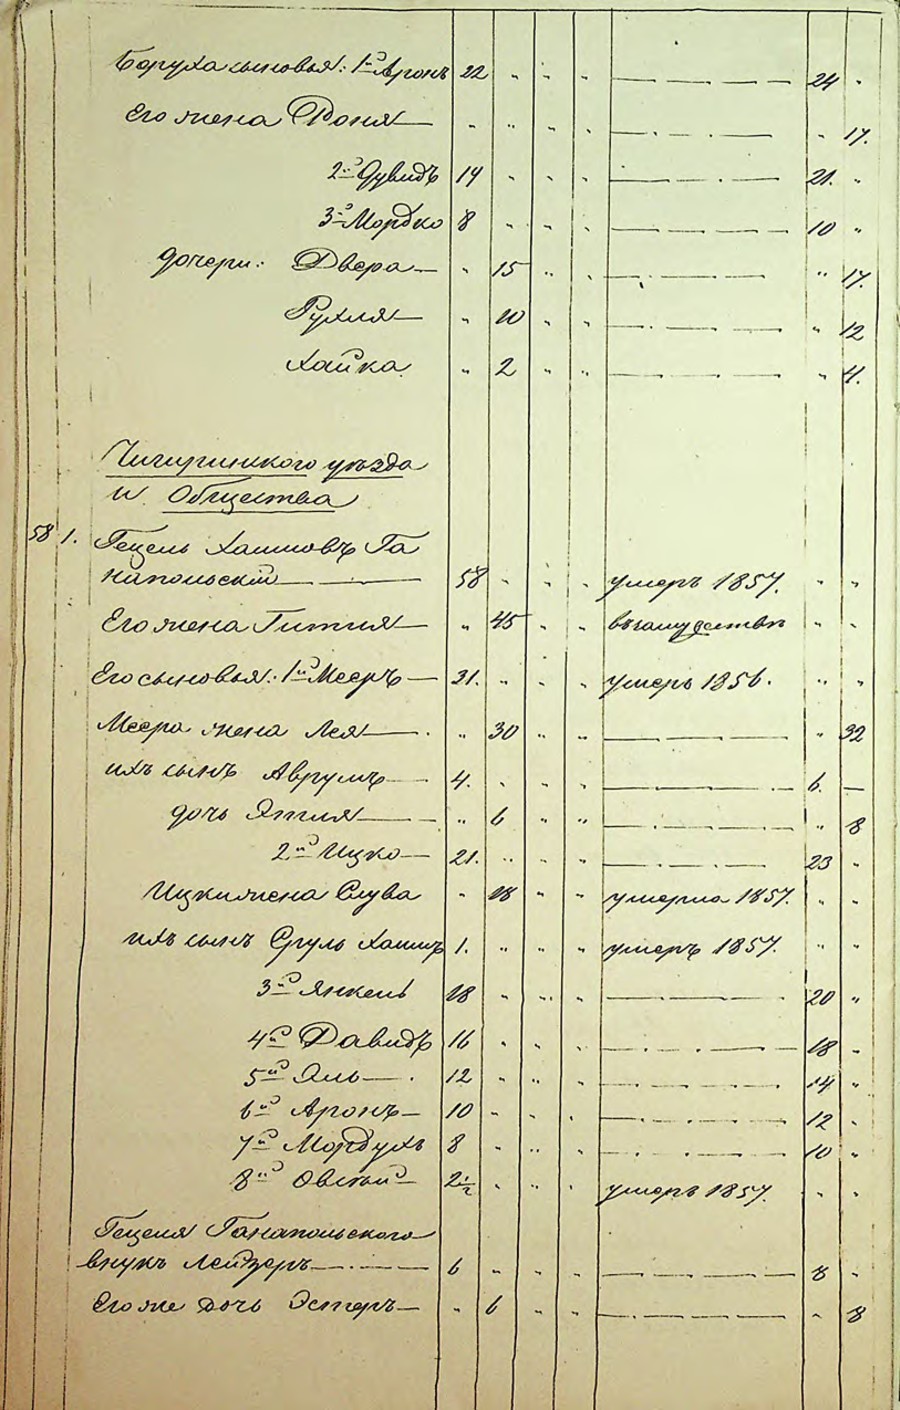 Боруха сыновья: 1й Аронъ 22 " " " — · — · — 24 "
Его жена Роня — " " " " — · — · — " 17.
2й Дувидъ 14 " " " — · — · — 21. "
3й Мордко 8 " " " — · — · — 10 "
дочери: Двера — " 15 " " — · — · — " 17.
Рухля — " 10 " " — · — · — " 12
Хайка " 2 " " — · — · — " 4.
Чигиринского уѣзда
и Общества
58 1. Гецель Хаимовъ Га
напольскій — · — 58 " " " умеръ 1857. " "
Его жена Гития — " 45 " " въ замужествѣ " "
Его сыновья: 1й Мееръ — 21. " " " умеръ 1856. " "
Меера жена Лея — . " 30 " " — · — · — " 32
ихъ сынъ Аврумъ — 4. " " " — · — · — 6. —
дочь Этия — " 6 " " — · — · — " 8
2й Ицко — 21. " " " — · — · — 23 "
Ицки жена Слува " 18 " " умерла 1857. " "
ихъ сынъ Сруль Хаимъ 1. " " " умеръ 1857. " "
3й Янкель 18 " " " — · — · — 20 "
4й Давидъ 16 " " " — · — · — 18 "
5й Эль — . 12 " " " — · — · — 14 "
6й Аронъ — 10 " " " — · — · — 12 "
7й Мордухъ 8 " " " — · — · — 10 "
8й Овсей — 2½ " " " умеръ 1857. " "
Гецеля Ганапольского
внукъ Лейзеръ — · — 6 " " " — · — · — 8 "
Его же дочь Эстеръ — " 6 " " — · — · — " 8